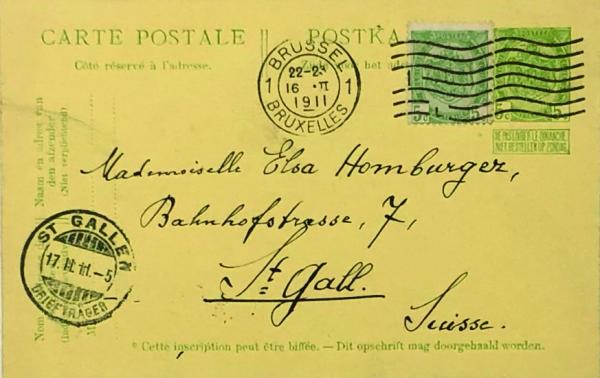 CARTE POSTALE
POSTKA
Côté réservé à l'adresse.
Zijde
het adres
BRUSSEL
1 22-23 1
16 II
1911
BRUXELLES
5 5
5 5
NE PAS LIVRER LE DIMANCHE
NIET BESTELLEN OP ZONDAG
Naam en adres van
den afzender
(Niet verplichtend)
Mademoiselle Elsa Homburger,
Bahnhofstrasse, 7,
St. Gall.
Suisse.
ST GALLEN
17.II.11.-5
BRIEFTRÄGER
* Cette inscription peut être biffée. — Dit opschrift mag doorgehaald worden.